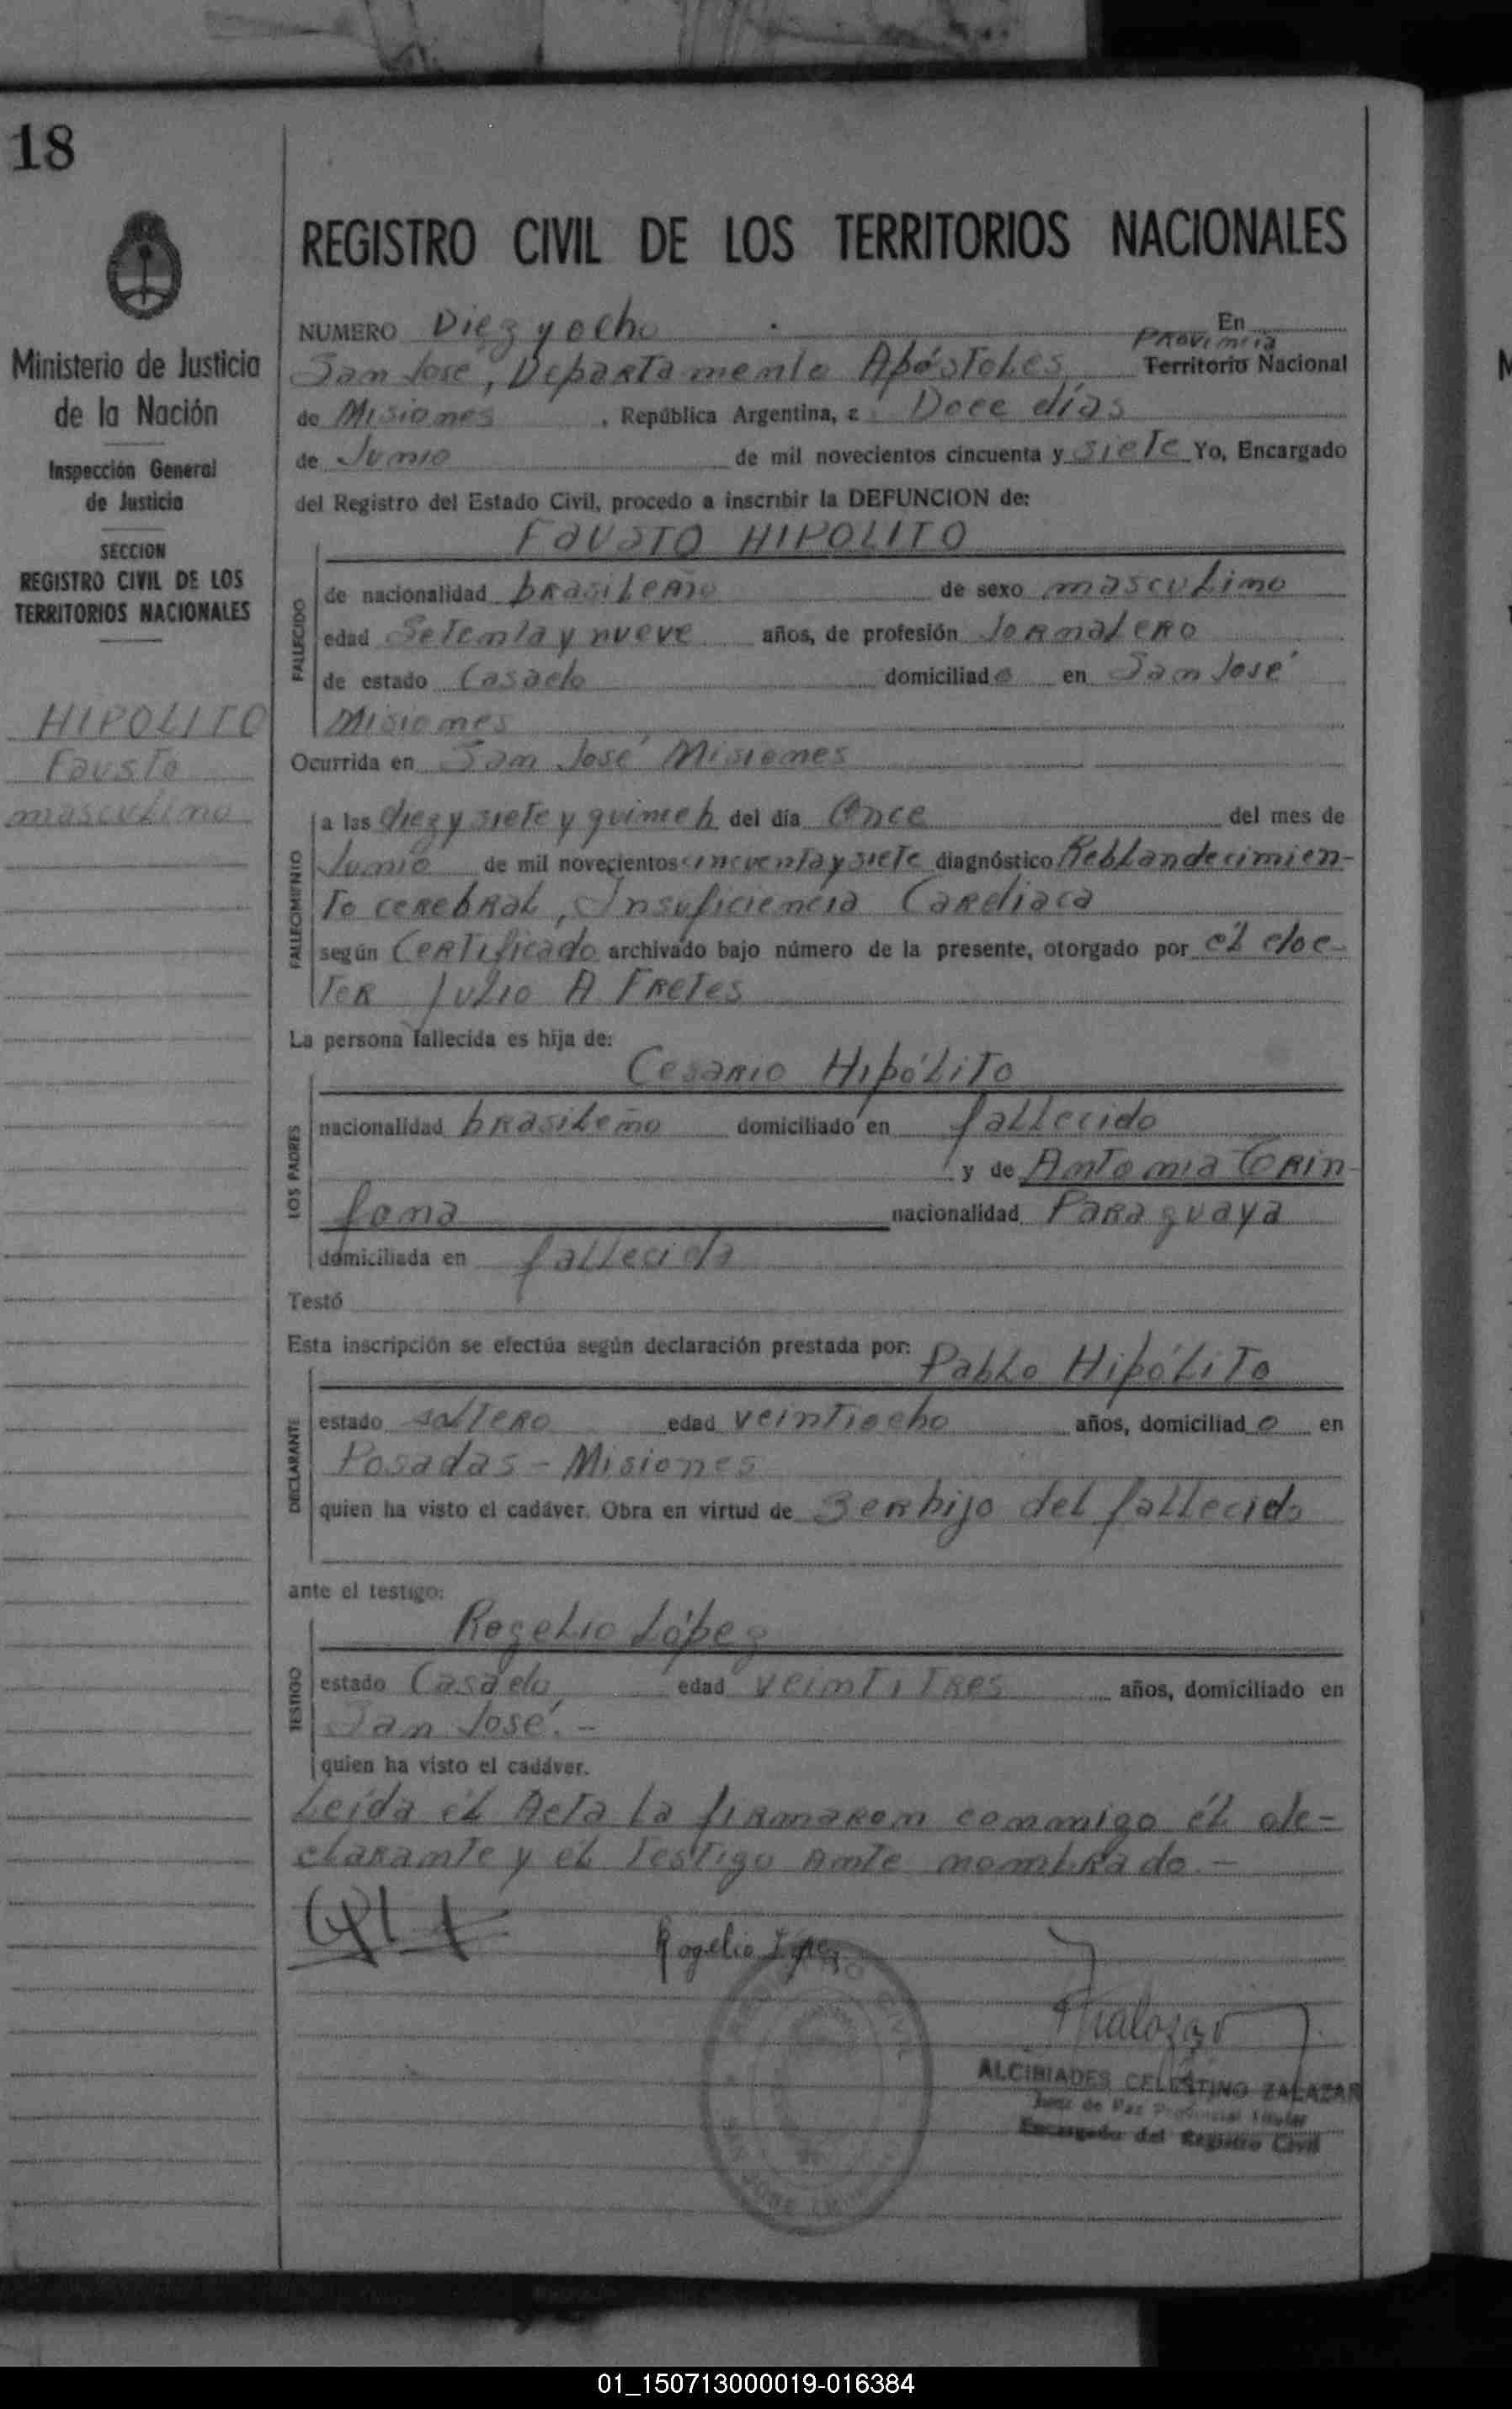 18
REGISTRO CIVIL DE LOS TERRITORIOS NACIONALES
Ministerio de Justicia
de la Nación
Inspección General
de Justicia
SECCION
REGISTRO CIVIL DE LOS
TERRITORIOS NACIONALES
HIPOLITO
Fausto
masculino
NUMERO Diez y ocho En
San José, Departamento Apóstoles Provincia Territorio Nacional
de Misiones, República Argentina, a Doce días
de Junio de mil novecientos cincuenta y siete Yo, Encargado
del Registro del Estado Civil, procedo a inscribir la DEFUNCION de:
FAUSTO HIPOLITO
FALLECIDO
de nacionalidad brasileño de sexo masculino
edad Setenta y nueve años, de profesión Jornalero
de estado Casado domiciliado en San José
Misiones
Ocurrida en San José Misiones
FALLECIMIENTO
a las diez y siete y quince h del día Once del mes de
Junio de mil novecientos cincuenta y siete diagnóstico Reblandecimien-
to cerebral, Insuficiencia Cardiaca
según Certificado archivado bajo número de la presente, otorgado por él doc-
tor Julio A Fretes
La persona fallecida es hija de:
Cesario Hipólito
LOS PADRES
nacionalidad brasileño domiciliado en fallecido
y de Antonia Crin-
fona nacionalidad Paraguaya
domiciliada en fallecida
Testó
Esta inscripción se efectúa según declaración prestada por: Pablo Hipólito
DECLARANTE
estado soltero edad veintiocho años, domiciliado en
Posadas - Misiones
quien ha visto el cadáver. Obra en virtud de Ser hijo del fallecido
ante el testigo:
Rogelio López
TESTIGO
estado Casado edad veintitres años, domiciliado en
San José.-
quien ha visto el cadáver.
Leída él Acta la firmaron conmigo él de-
clarante y él testigo Ante nombrado.-
Rogelio López
ALCIBIADES CELESTINO ZALAZAR
Juez de Paz Provincial Titular
Encargado del Registro Civil
01_150713000019-016384